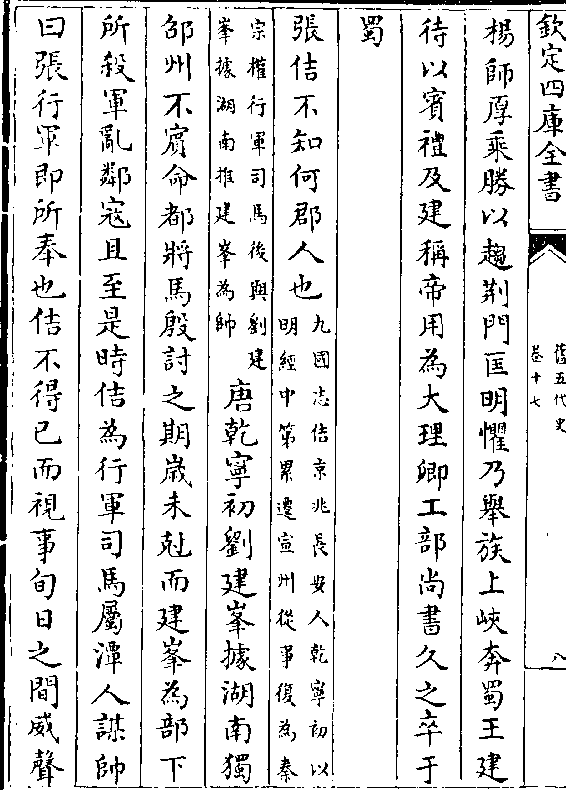 欽定四庫全書
舊五代史
卷十七
八
楊師厚乘勝以趨荆門匡明懼乃舉族上峽奔蜀王建
待以賓禮及建稱帝用為大理卿工部尚書久之卒于
蜀
張佶不知何郡人也九國志佶京兆長安人乾寧初以
明經中第累遷宣州從事復為秦
宗權行軍司馬後與劉建
峯據湖南推建峯為帥
唐乾寧初劉建峯據湖南獨
邵州不賓命都將馬殷討之期歲未尅而建峯為部下
所殺軍亂鄰寇且至是時佶為行軍司馬屬潭人謀帥
曰張行軍即所奉也佶不得已而視事旬日之間威聲